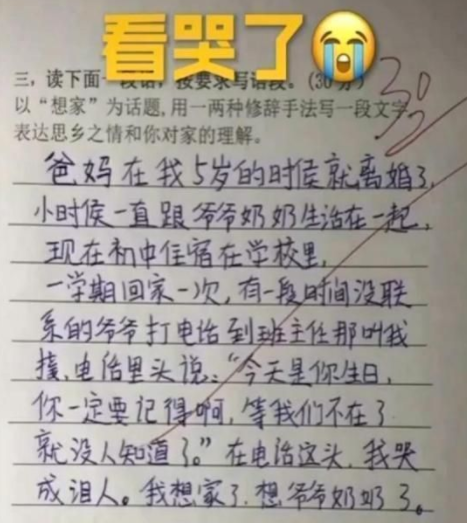 看哭了
三、读下面一段话，按要求写语段。(30分)
30
以“想家”为话题,用一两种修辞手法写一段文字,
表达思乡之情和你对家的理解。
爸妈在我5岁的时侯就离婚了,
小时侯一直跟爷爷奶奶生活在一起,
现在初中住宿在学校里,
一学期回家一次,有一段时间没联
系的爷爷打电话到班主任那叫我
接,电话里头说:“今天是你生日,
你一定要记得啊,等我们不在了
就没人知道了。”在电话这头,我哭
成泪人。我想家了,想爷爷奶奶了。